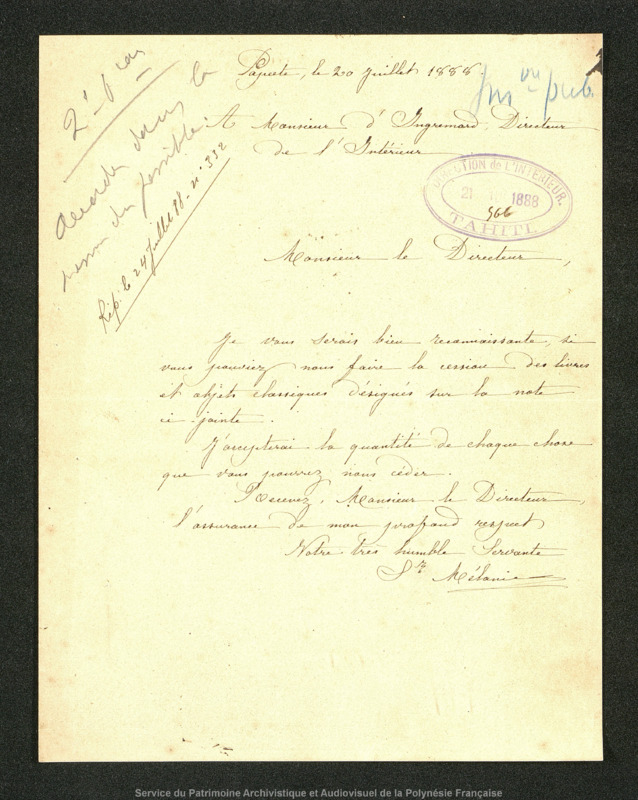 Papeete, le 20 Juillet 1888
Ins on pub.
2e Bau
Accorder dans la
mesure du possible.
Rép. le 24 Juillet 88 - n° 332
A Monsieur d'Ingremard, Directeur
de l'Intérieur
DIRECTION de L'INTÉRIEUR.
21 1888
566
TAHITI.
Monsieur le Directeur,
Je vous serais bien reconnaissante, si
vous pouviez nous faire la cession des livres
et objets classiques désignés sur la note
ci-jointe.
J'accepterai la quantité de chaque chose
que vous pourrez nous céder.
Recevez, Monsieur le Directeur,
l'assurance de mon profond respect
Votre très humble Servante
Sr Mélanie
Service du Patrimoine Archivistique et Audiovisuel de la Polynésie Française